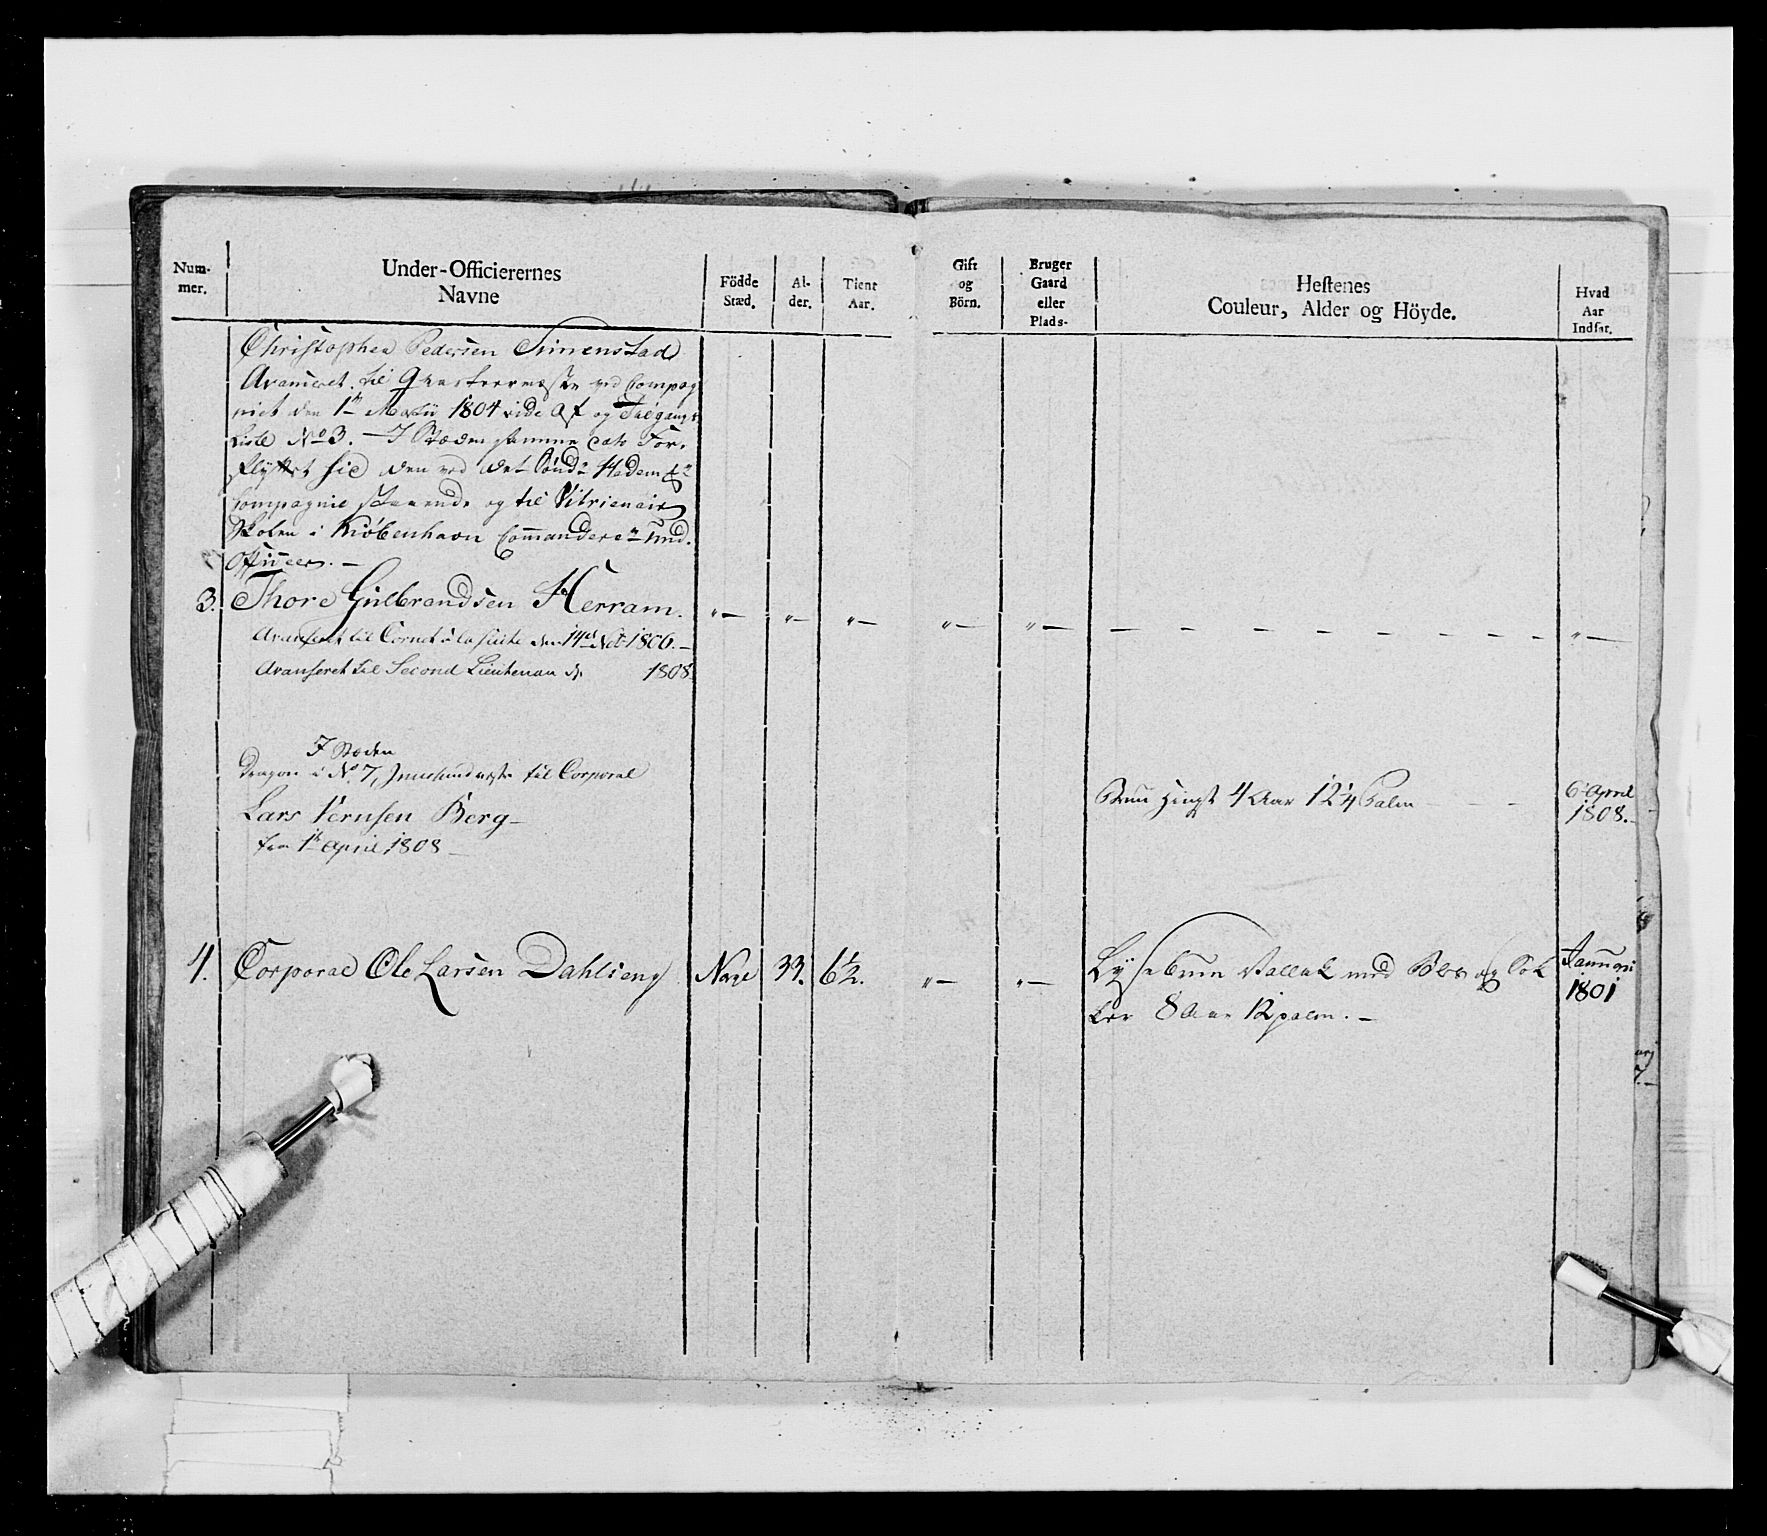 Num-
mer.
Under-Officierernes
Navne
Födde
Stæd.
Al-
der.
Tient
Aar.
Gift
og
Börn.
Bruger
Gaard
eller
Plads-
Hestenes
Couleur, Alder og Höyde.
Hvad
Aar
Indsat.
Christopher Pedersen Simenstad
Avanceret til ved Compag
niet den 1te Martii 1804 vide Af og Tilgangs
Liste No 3. – I Stæden samme dato For,
flyttet hid den ved det Sönd: Hedem:
Compagnie staaende og til Vitrienair
Skolen i Kiöbenhavn Commandere: Und.
Officeer. –
3. Thore Gulbrandsen Herram. "– "– "– "– "– – – – – – – – "–
Avanseret til Cornet a la suite den 14de 1806. –
Avanseret til Second Lieutenan d. 1808.
I Stæden
Dragon i No 7, til Corporal
Lars Iernsen Berg –
fra 1te April 1808 –
Brun Hingst 4 Aar 12¼ Palm – – –
6 April
1808. –
4. Corporal Ole Larsen Dahlseng Næs 33. 6½. "– "– Lysebrun Vallak med Blis og Sok
ker 8 Aar 12 palm. –
Januari
1801